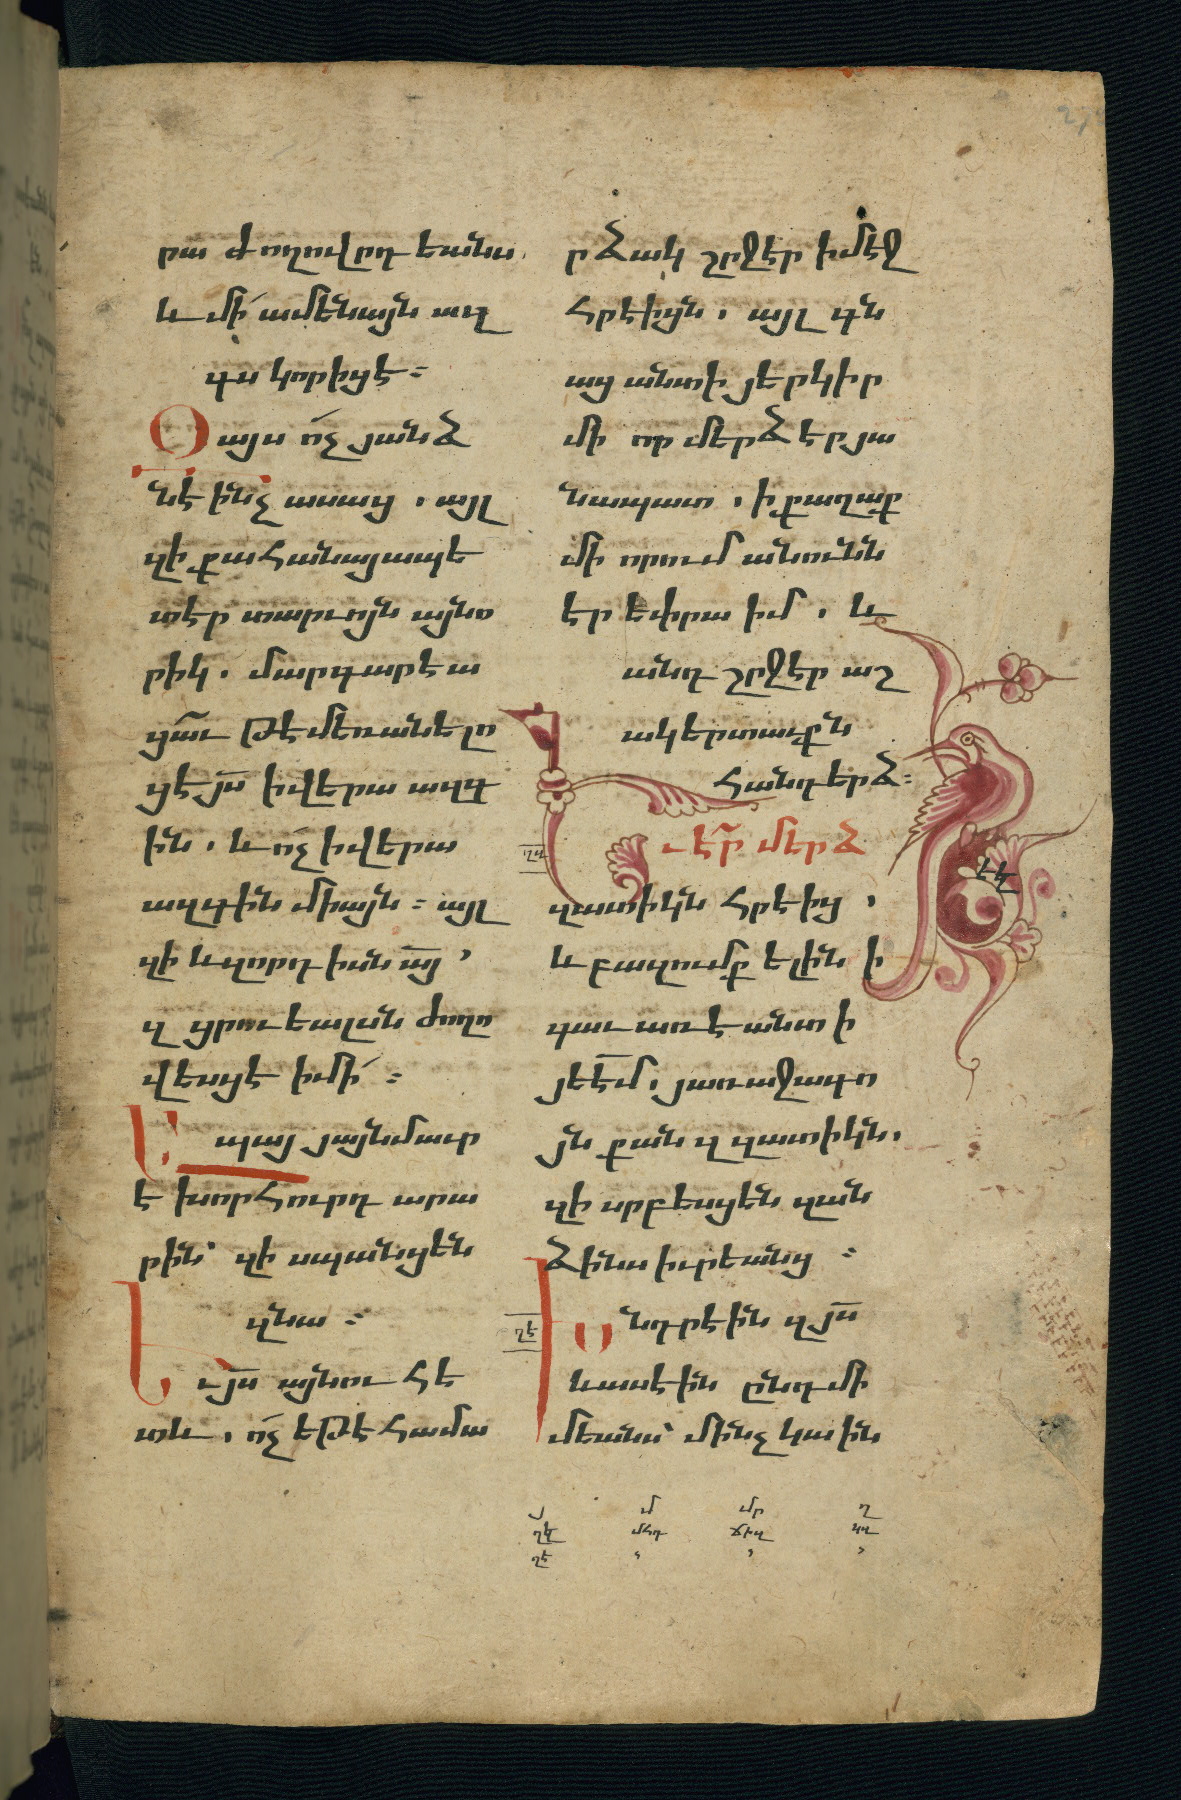 րա ժողովրդեանս,
և մի՛ ամենայն ազ
գս կորիցէ ։
Զայս ո՛չ յանձ
նէ ինչ ասաց . այլ
զի քահանայապե
տէր տարւոյն այնո
րիկ . մարգարէա
ցաւ թէ մեռանելո
ց է յս ի վերա ազգ
ին . և ո՛չ ի վերա
ազգին միայն ։ այլ
զի և զորդիսն այ ՝
զցրուեալսն ժողո
վեսցէ ի մի՛ ։
Ապայ յայնմաւր
է խորհուրդ արա
րին՝ զի սպանցեն
զնա ։
Եւ յս այնուհե
տև . ո՛չ եթէ համա
րձակ շրջէր ի մէջ
հրէիցն . այլ գն
աց անտի յերկիր
մի որ մերձ էր յա
նապատ . ի քաղաք
մի որում անունն
էր եփրաիմ . և
անդ շրջէր աշ
ակերտաւքն
հանդերձ ։
Եւ էր մերձ
զատիկն հրէից ,
և բազումք ելին ի
գաւառէ անտի
յեէմ . յառաջագո
յն քան զզատիկն .
զի սրբեսցեն զան
ձինս իւրեանց ։
ղէ
Խնդրէին զյս
և ասէին ընդ մի
մեանս՝ մինչ կային
յ մ մր ղ
ղէ